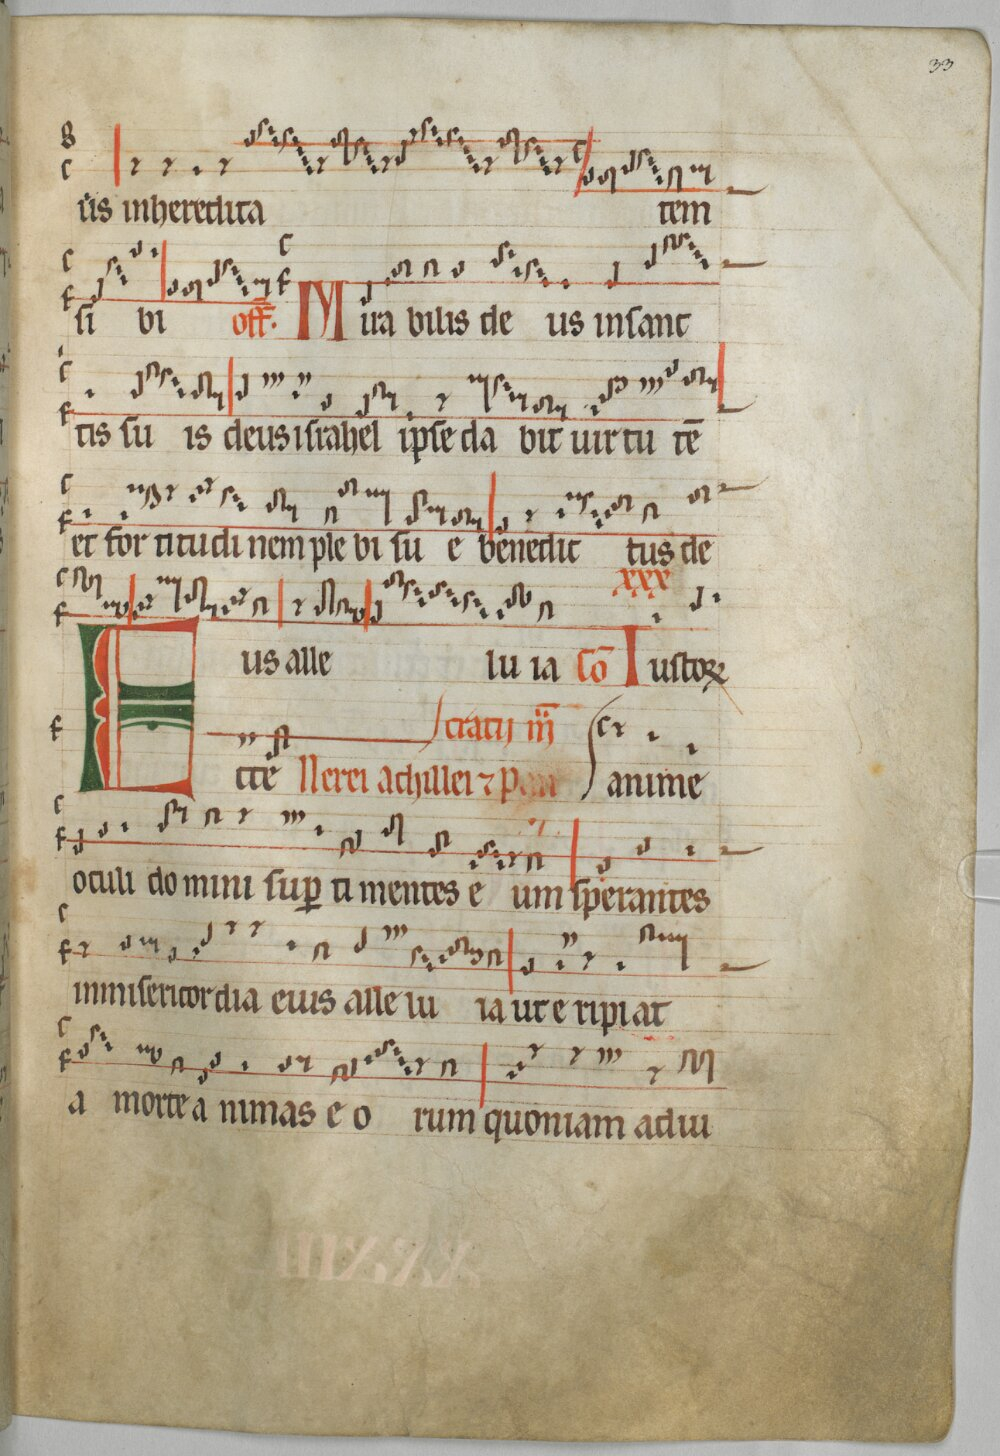 33
us inheredita tem
si bi off. Mira bilis de us insanc
tis su is deus israhel ipse da bit uir tu tē
et for titudinem ple bi su e benedic tus de
xxx
us alle lu ia Cō Iustoꝝ
E cce
nerei achillei ⁊ pan
cracii m̄
anime
oculi do mini suꝑ ti mentes e um sperantes
inmisericordia eius alle lu ia ut e ripi at
a morte a nimas e o rum quoniam adiu